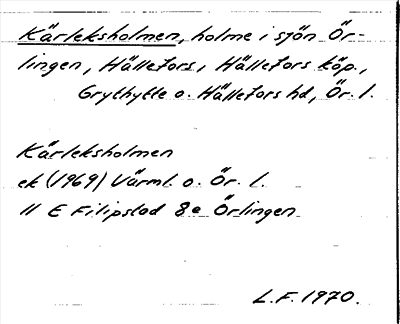 Kärleksholmen, holme i sjön Ör-
lingen, Hällefors, Hällefors köp.,
Grythytte o. Hällefors hd, Ör. l.
Kärleksholmen
ek (1969) Värml. o. Ör. l.
11 E Filipstad 8e Örlingen
L.F. 1970.